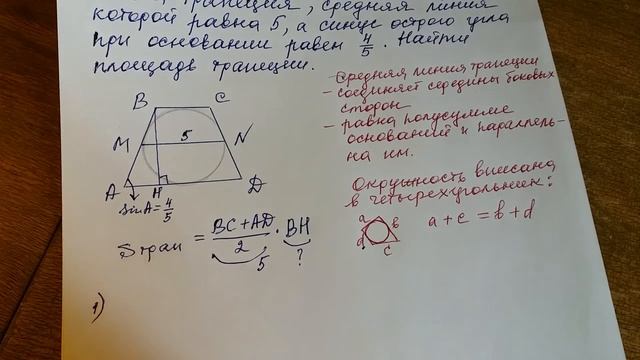 трапеция, средняя линия
которой равна 5, а синус острого угла
при основании равен 4/5. Найти
площадь трапеции.
B C
M 5 N
A H D
sin A = 4/5
Sтрап = BC + AD / 2 · BH
5 ?
1)
Средняя линия трапеции
- соединяет середины боковых
сторон
- равна полусумме
оснований и параллель-
на им.
Окружность вписана
в четырехугольник:
a b
d c
a + c = b + d